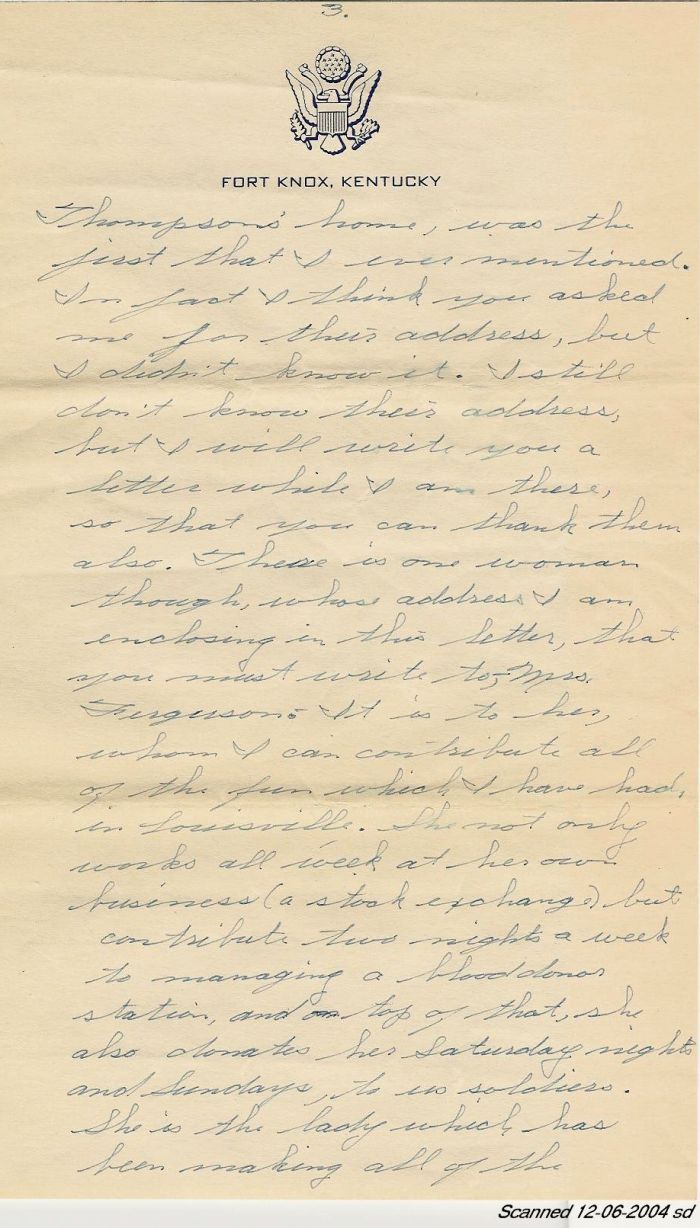 3.
FORT KNOX, KENTUCKY
Thompsons' home, was the
first that I ever mentioned.
In fact I think you asked
me for their address, but
I didn't know it. I still
don't know their address,
but I will write you a
letter while I am there,
so that you can thank them
also. There is one woman
though, whose address I am
enclosing in this letter, that
you must write to,- Mrs.
Ferguson:- It is to her,
whom I can contribute all
of the fun which I have had,
in Louisville. She not only
works all week at her own
business (a stock exchange) but
contribute two nights a week
to managing a blood donor
station, and on top of that, she
also donates her Saturday nights
and Sundays, to us soldiers.
She is the lady which has
been making all of the
Scanned 12-06-2004 sd